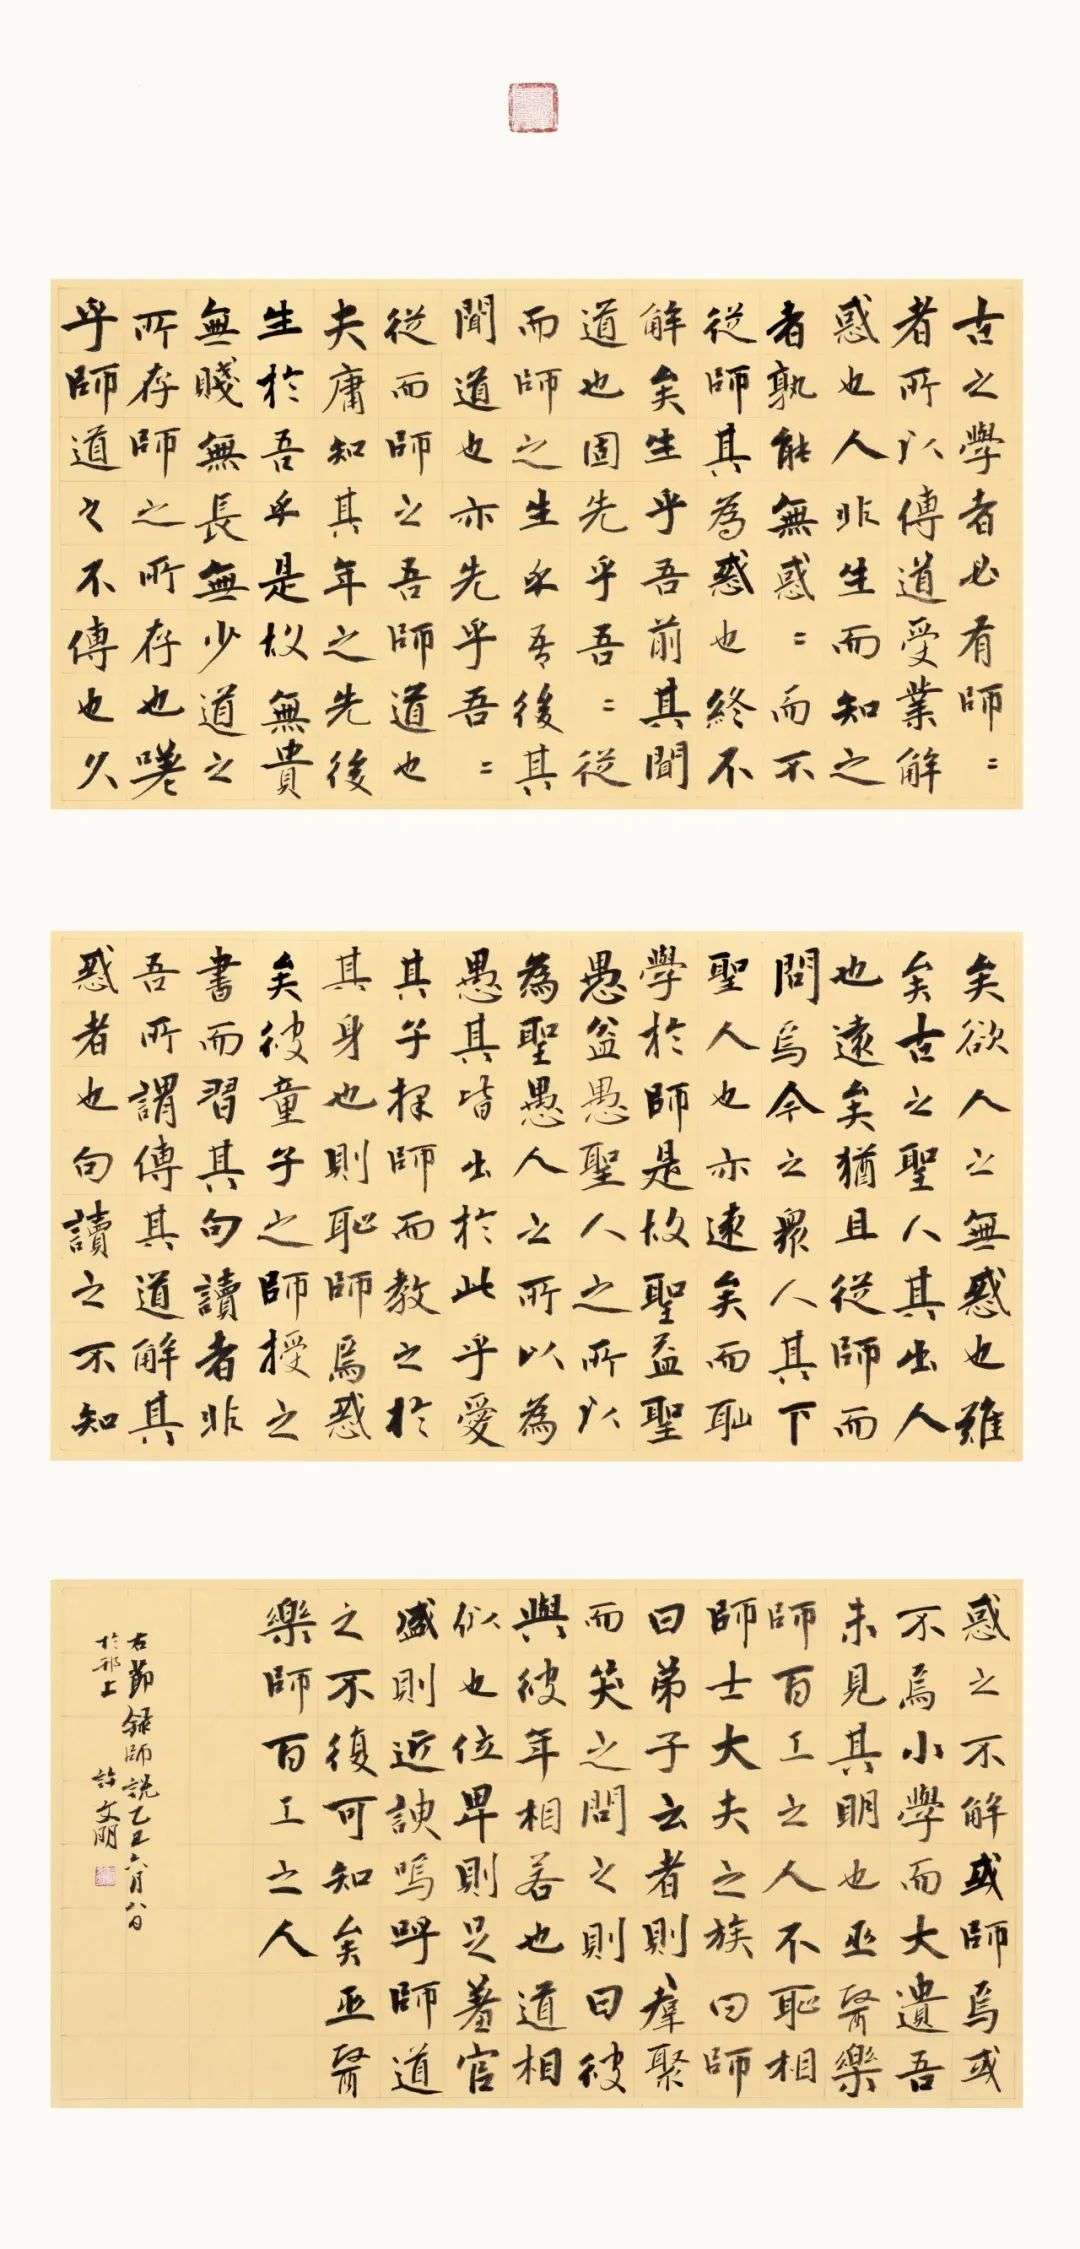 古之學者必有師〻
者所以傳道受業解
惑也人非生而知之
者孰能無惑〻而不
從師其為惑也終不
解矣生乎吾前其聞
道也固先乎吾〻從
而師之生乎吾後其
聞道也亦先乎吾〻
從而師之吾師道也
夫庸知其年之先後
生於吾乎是故無貴
無賤無長無少道之
所存師之所存也嗟
乎師道之不傳也久
矣欲人之無惑也難
矣古之聖人其出人
也遠矣猶且從師而
問焉今之眾人其下
聖人也亦遠矣而恥
學於師是故聖益聖
愚益愚聖人之所以
為聖愚人之所以為
愚其皆出於此乎愛
其子擇師而教之於
其身也則恥師焉惑
矣彼童子之師授之
書而習其句讀者非
吾所謂傳其道解其
惑者也句讀之不知
惑之不解或師焉或
不焉小學而大遺吾
未見其明也巫醫樂
師百工之人不恥相
師士大夫之族曰師
曰弟子云者則羣聚
而笑之問之則曰彼
與彼年相若也道相
似也位卑則足羞官
盛則近諛嗚呼師道
之不復可知矣巫醫
樂師百工之人
右節錄師說乙巳六月八日
於邗上許文明